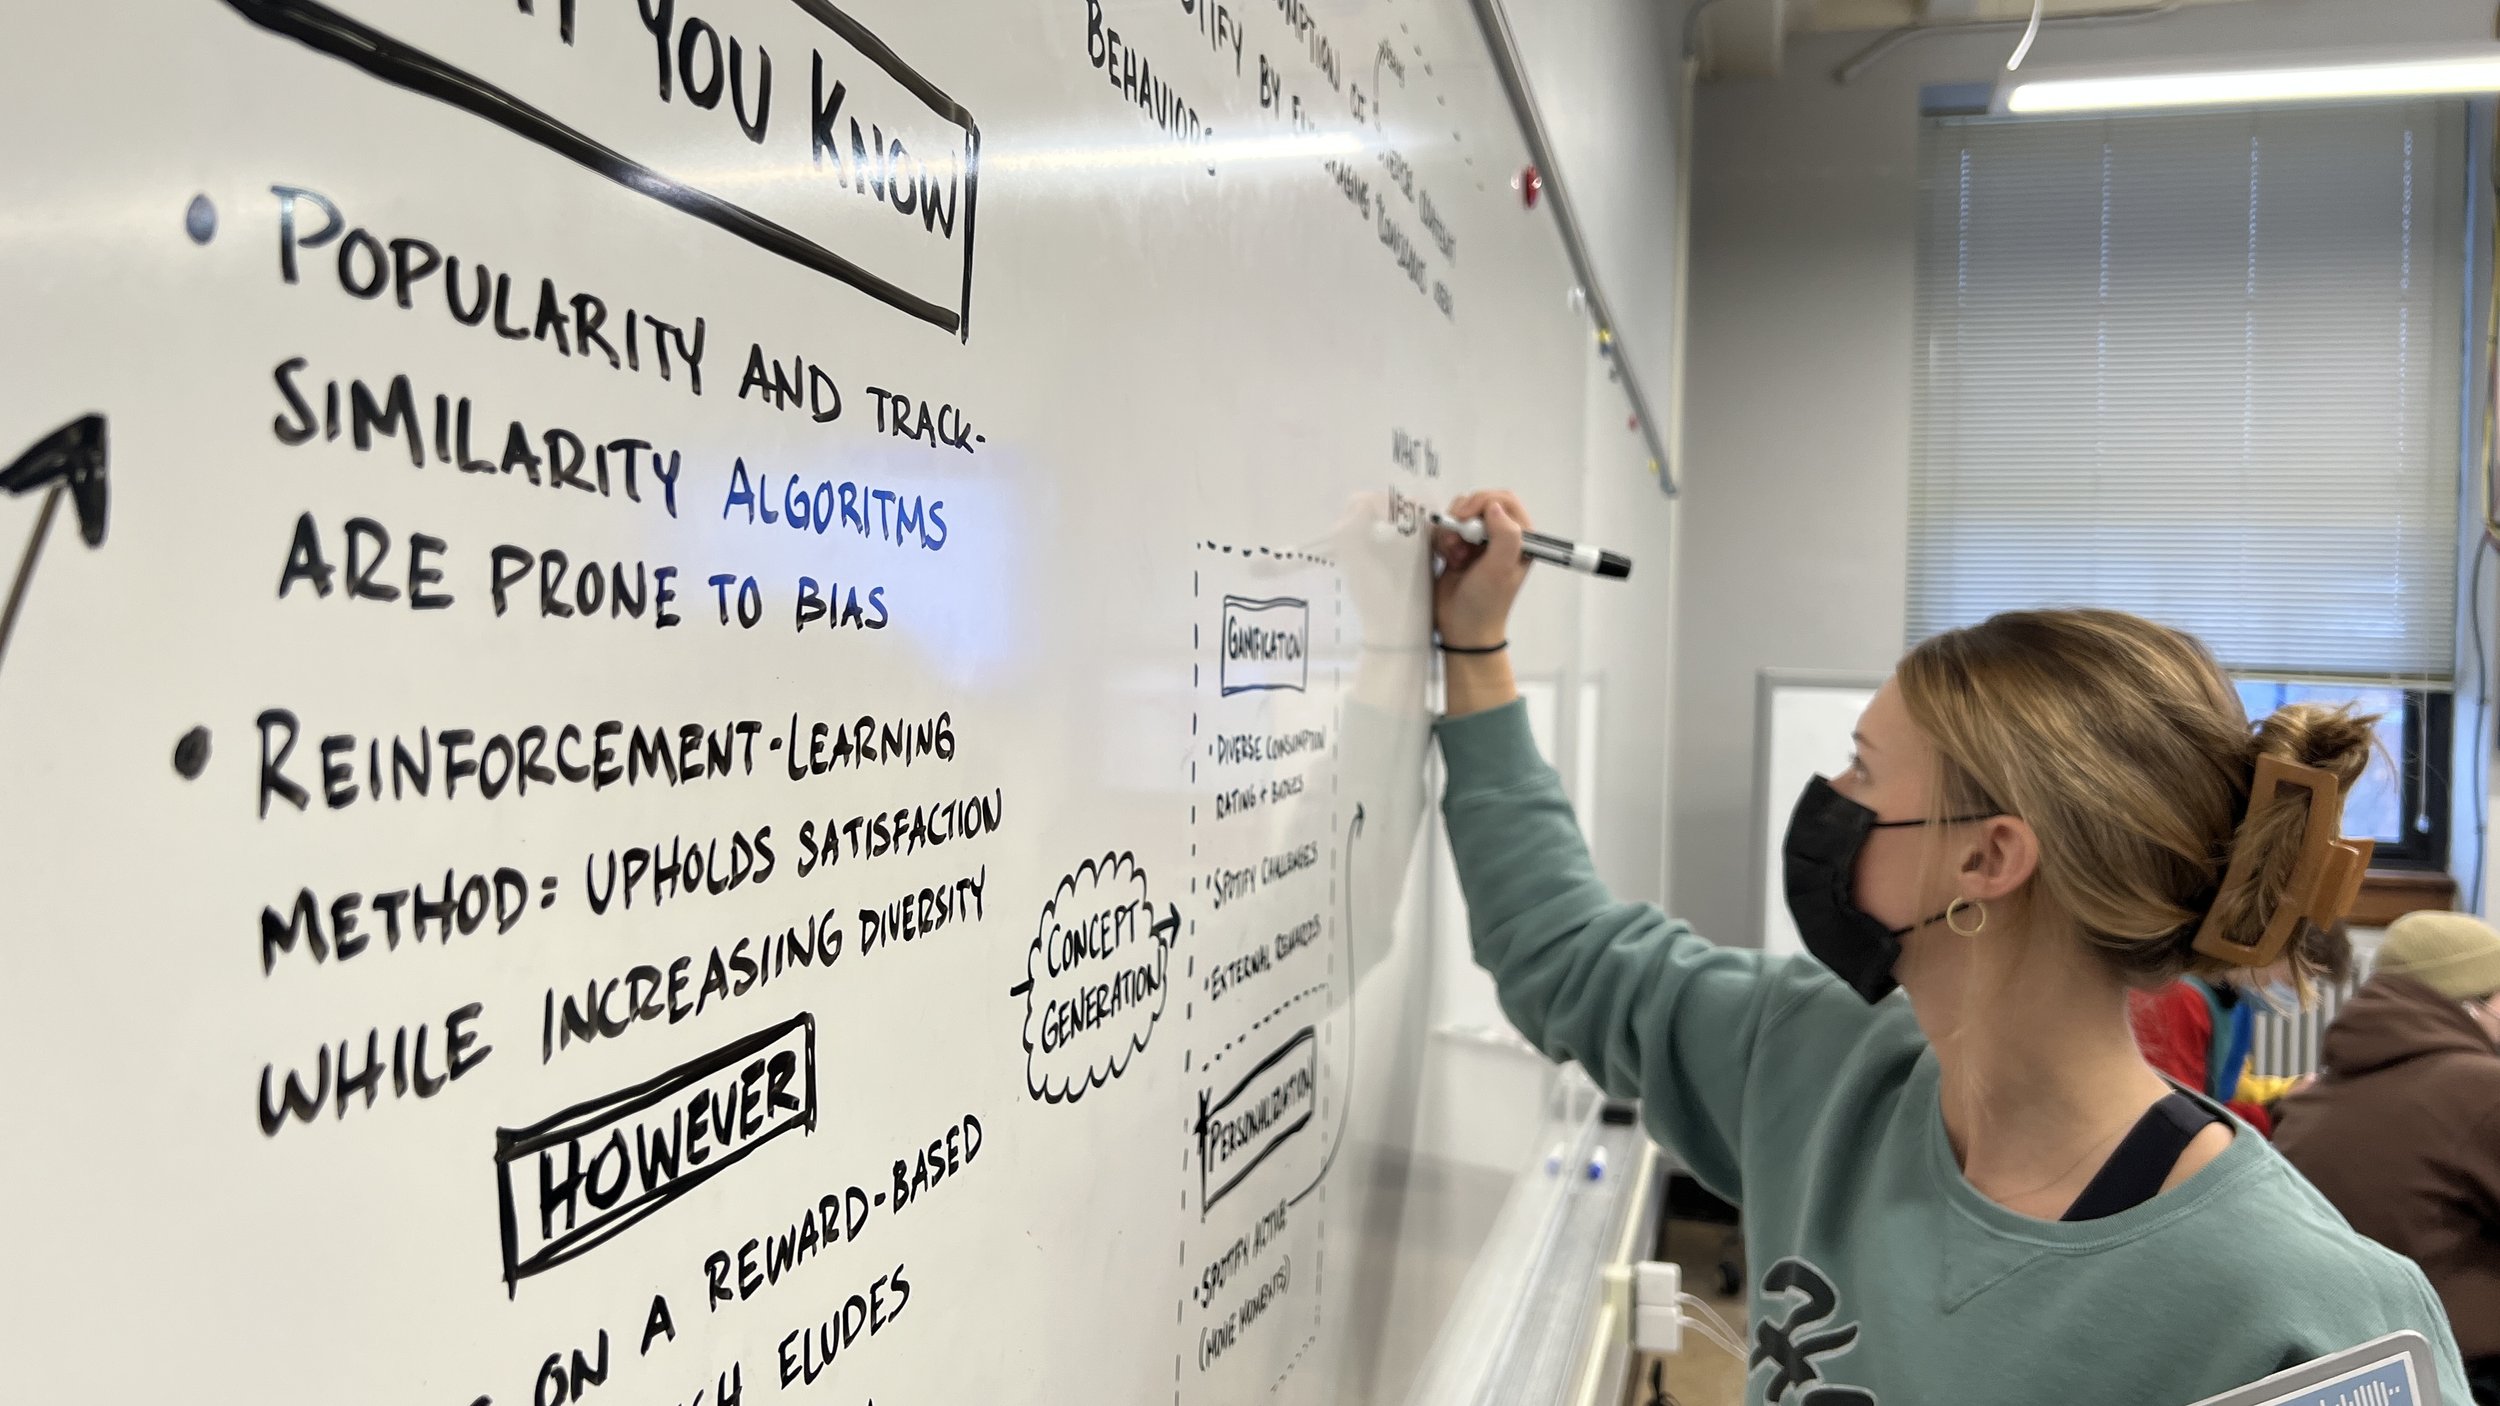 YOU KNOW
• POPULARITY AND TRACK-
SIMILARITY ALGORITMS
ARE PRONE TO BIAS
• REINFORCEMENT-LEARNING
METHOD: UPHOLDS SATISFACTION
WHILE INCREASIING DIVERSITY
HOWEVER
ON A REWARD-BASED
ELUDES
CONCEPT
GENERATION
BEHAVIORS
BY
WHAT YOU
GAMIFICATION
• DIVERSE CONSUMPTION
RATING + BADGES
• SPOTIFY CHALLENGES
• EXTERNAL REWARDS
PERSONALIZATION
• SPOTIFY ACTIVE
(MOVE MOMENTS)